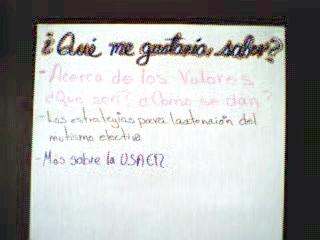 ¿Qué me gustaría saber?
- Acerca de los Valores
¿Que son? ¿Como se dan?
- Las estrategias para la atención del
mutismo electivo
- Mas sobre la USAER